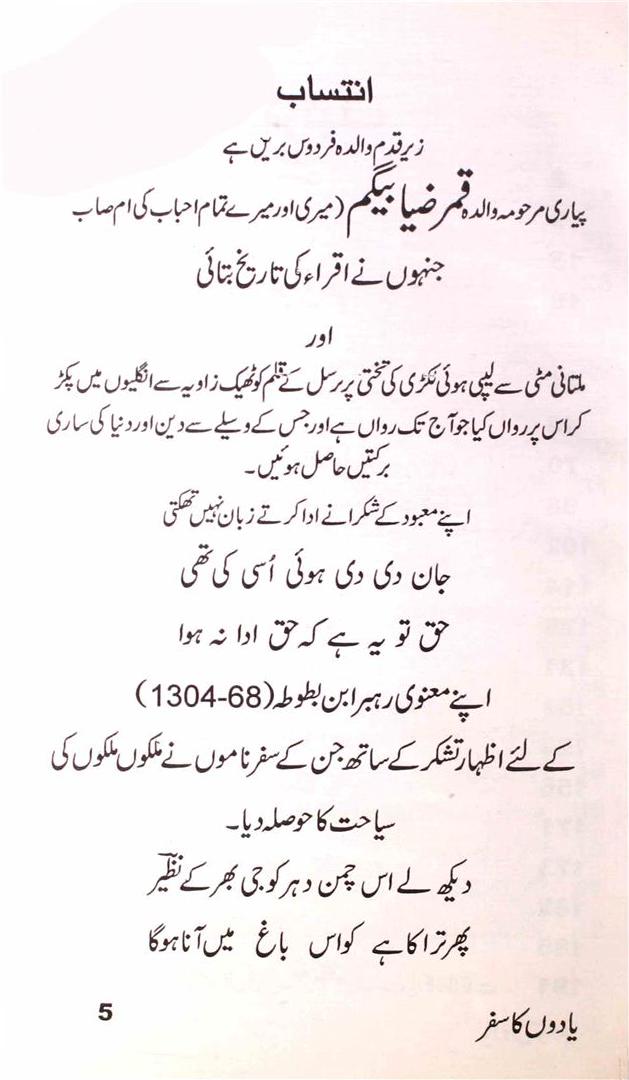 انتساب
زیر قدم والدہ فردوس بریں ہے
پیاری مرحومہ والدہ قمر ضیا بیگم (میری اور میرے تمام احباب کی ام صاب
جنہوں نے اقراء کی تاریخ بتائی
اور
ملتانی مٹی سے لپی ہوئی لکڑی کی تختی پر برسل کے قلم کو ٹھیک زاویہ سے انگلیوں میں پکڑ
کر اس پر رواں کیا جو آج تک رواں ہے اور جس کے وسیلے سے دین اور دنیا کی ساری
برکتیں حاصل ہوئیں۔
اپنے معبود کے شکرانے ادا کرتے زبان نہیں تھکتی
جان دی دی ہوئی اُسی کی تھی
حق تو یہ ہے کہ حق ادا نہ ہوا
اپنے معنوی رہبر ابن بطوطہ (1304-68)
کے لئے اظہار تشکر کے ساتھ جن کے سفرناموں نے ملکوں ملکوں کی
سیاحت کا حوصلہ دیا۔
دیکھ لے اس چمن دہر کو جی بھر کے نظیرؔ
پھر ترا کاہے کو اس باغ میں آنا ہوگا
یادوں کا سفر 5